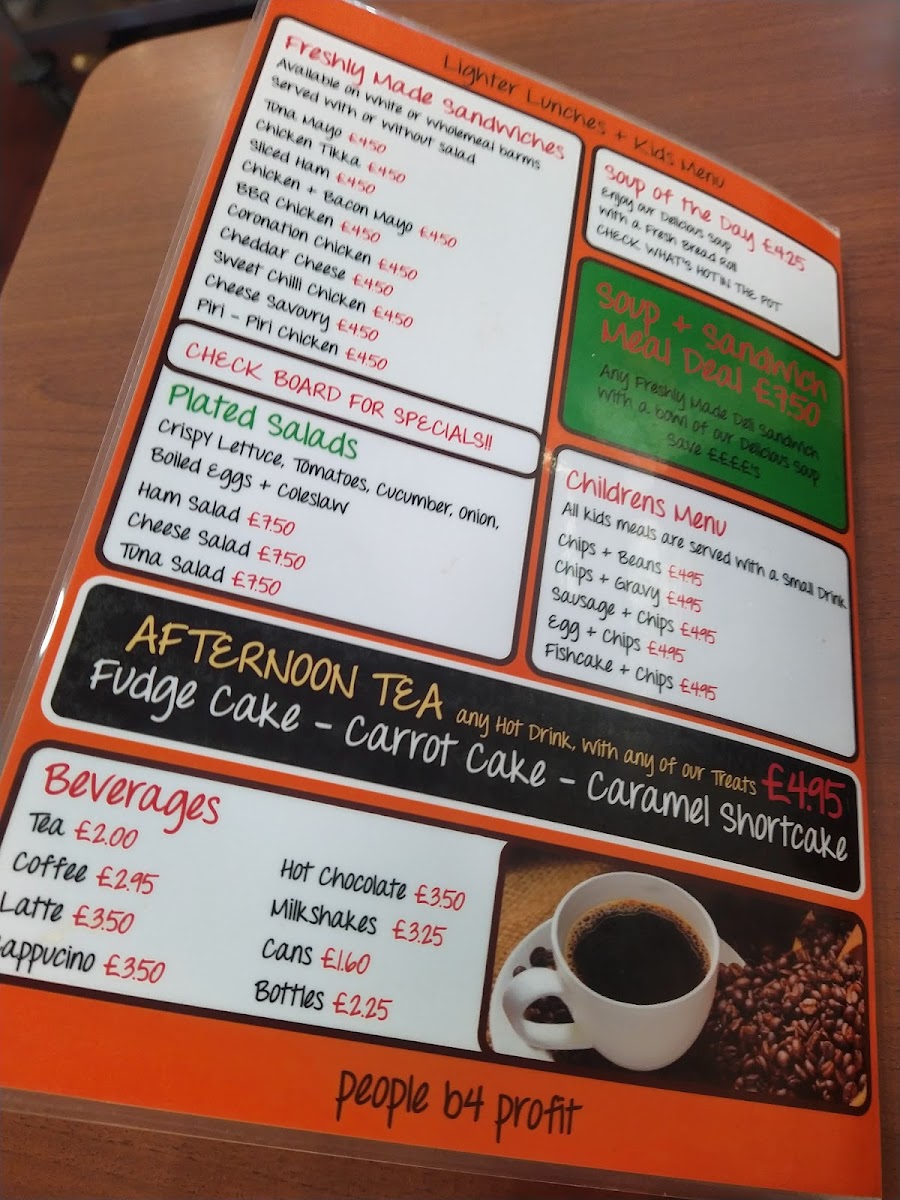 Lighter Lunches + Kids Menu
Freshly Made Sandwiches
Available on white or wholemeal barms
Served with or without salad
Tuna Mayo £4.50
Chicken Tikka £4.50
Sliced Ham £4.50
Chicken + Bacon Mayo £4.50
BBQ Chicken £4.50
Coronation Chicken £4.50
Cheddar Cheese £4.50
Sweet Chilli Chicken £4.50
Cheese Savoury £4.50
Piri - Piri Chicken £4.50
CHECK BOARD FOR SPECIALS!!
Plated Salads
Crispy Lettuce, Tomatoes, Cucumber, Onion,
Boiled Eggs + Coleslaw
Ham Salad £7.50
Cheese Salad £7.50
Tuna Salad £7.50
Soup of the Day £4.25
Enjoy our Delicious Soup
With a Fresh Bread Roll
CHECK WHAT'S HOT IN THE POT
Soup + Sandwich
Meal Deal £7.50
Any Freshly Made Deli Sandwich
With a bowl of our Delicious Soup
Save ££££'s
Childrens Menu
All kids meals are served with a Small Drink
Chips + Beans £4.95
Chips + Gravy £4.95
Sausage + Chips £4.95
Egg + Chips £4.95
Fishcake + Chips £4.95
AFTERNOON TEA any Hot Drink, with any of our Treats £4.95
Fudge Cake - Carrot Cake - Caramel Shortcake
Beverages
Tea £2.00
Coffee £2.95
Latte £3.50
appucino £3.50
Hot Chocolate £3.50
Milkshakes £3.25
Cans £1.60
Bottles £2.25
people b4 profit